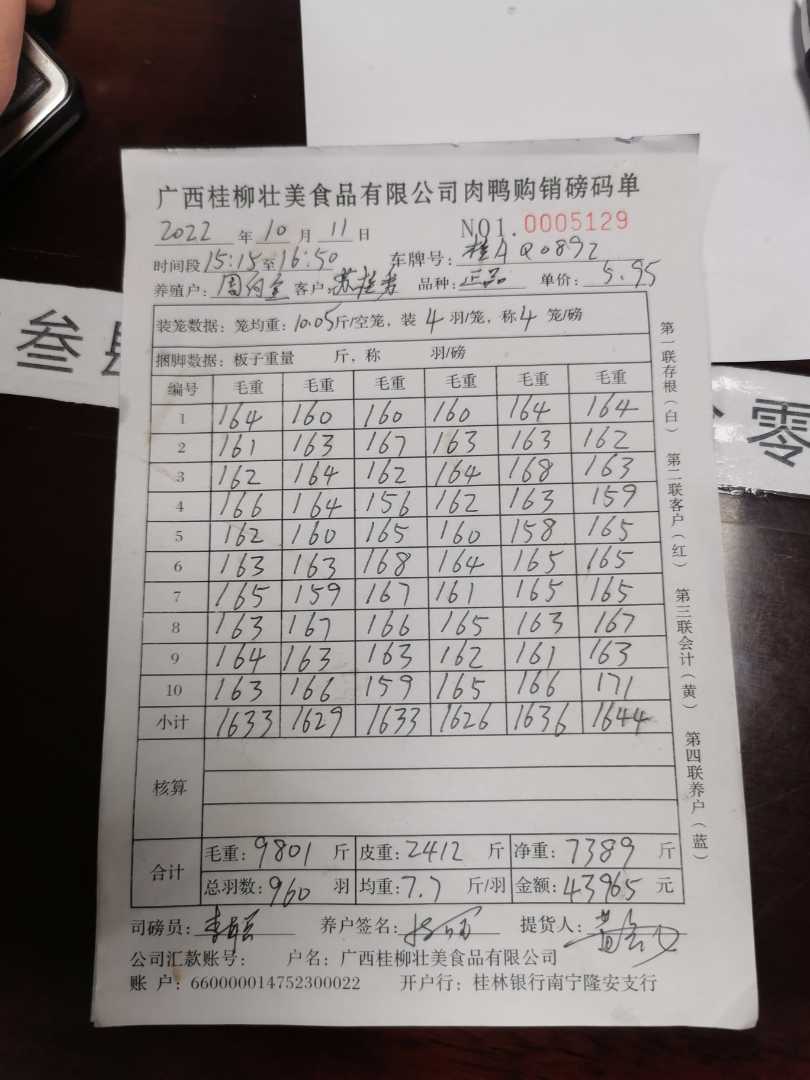 广西桂柳壮美食品有限公司肉鸭购销磅码单
2022 年 10 月 11 日 NO1.0005129
时间段 15:15 至 16:50 车牌号: 桂A Q0892
养殖户: 周 客户: 苏 品种: 正品 单价: 5.95
装笼数据: 笼均重: 10.05 斤/空笼, 装 4 羽/笼, 称 4 笼/磅
捆脚数据: 板子重量 斤, 称 羽/磅
编号 毛重 毛重 毛重 毛重 毛重 毛重
1 164 160 160 160 164 164
2 161 163 167 163 163 162
3 162 164 162 164 168 163
4 166 164 156 162 163 159
5 162 160 165 160 158 165
6 163 163 168 164 165 165
7 165 159 167 161 165 165
8 163 167 166 165 163 167
9 164 163 163 162 161 163
10 163 166 159 165 166 171
小计 1633 1629 1633 1626 1636 1644
核算
合计 毛重: 9801 斤 皮重: 2412 斤 净重: 7389 斤
总羽数: 960 羽 均重: 7.7 斤/羽 金额: 43965 元
司磅员: 养户签名: 提货人:
公司汇款账号: 户名: 广西桂柳壮美食品有限公司
账 户: 660000014752300022 开户行: 桂林银行南宁隆安支行
第一联存根(白) 第二联客户(红) 第三联会计(黄) 第四联养户(蓝)
叁
零